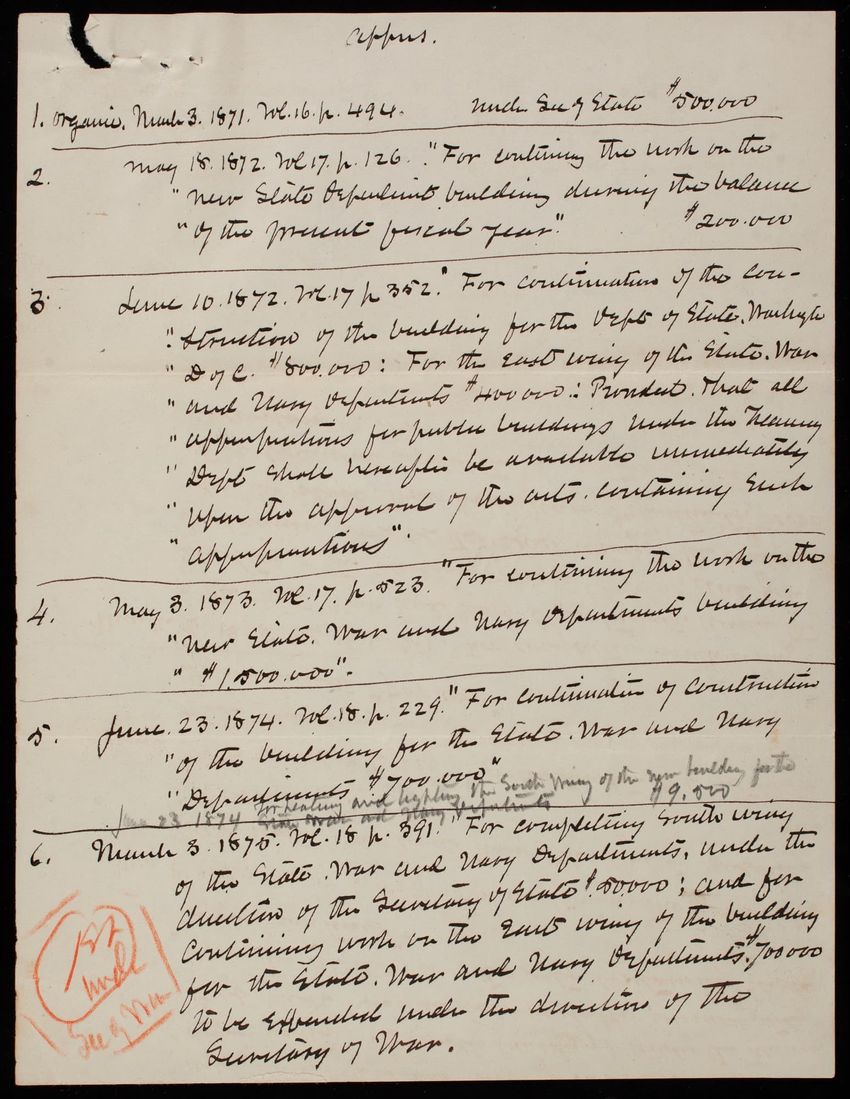 appns.
1. organic. March 3. 1871. Vol. 16. p. 494. under Sec of State $500.000
2. May 18. 1872. Vol 17. p. 126. "For continuing the work on the
"new State Department building during the balance
"of the present fiscal year". $200.000
3. June 10. 1872. Vol. 17 p 352. "For continuation of the con-
"struction of the building for the Dept of State. Washington
"D of C. $800.000: For the East wing of the State. War
"and Navy Departments $400 000: Provided. that all
"appropriations for public buildings under the Treasury
"Dept shall hereafter be available immediately
"upon the approval of the acts. containing such
"appropriations".
4. May 3. 1873. Vol. 17. p. 523. "For continuing the work on the
"new State. War and Navy Departments building
" $1.500.000".
5. June. 23. 1874. Vol. 18. p. 229. "For continuation of construction
"of the building for the State. War and Navy
"Departments $700.000"
June 23 1874 For heating and lighting the South Wing of the new building for the
State War and Navy Departments $9.500
6. March 3. 1875. Vol. 18 p. 391. "For completing South wing
of the State. War and Navy Departments, under the
direction of the Secretary of State $.50000; and for
continuing work on the East wing of the building
for the State. War and Navy Departments. $700000
to be expended under the direction of the
Secretary of War.
1st
under
Sec of War